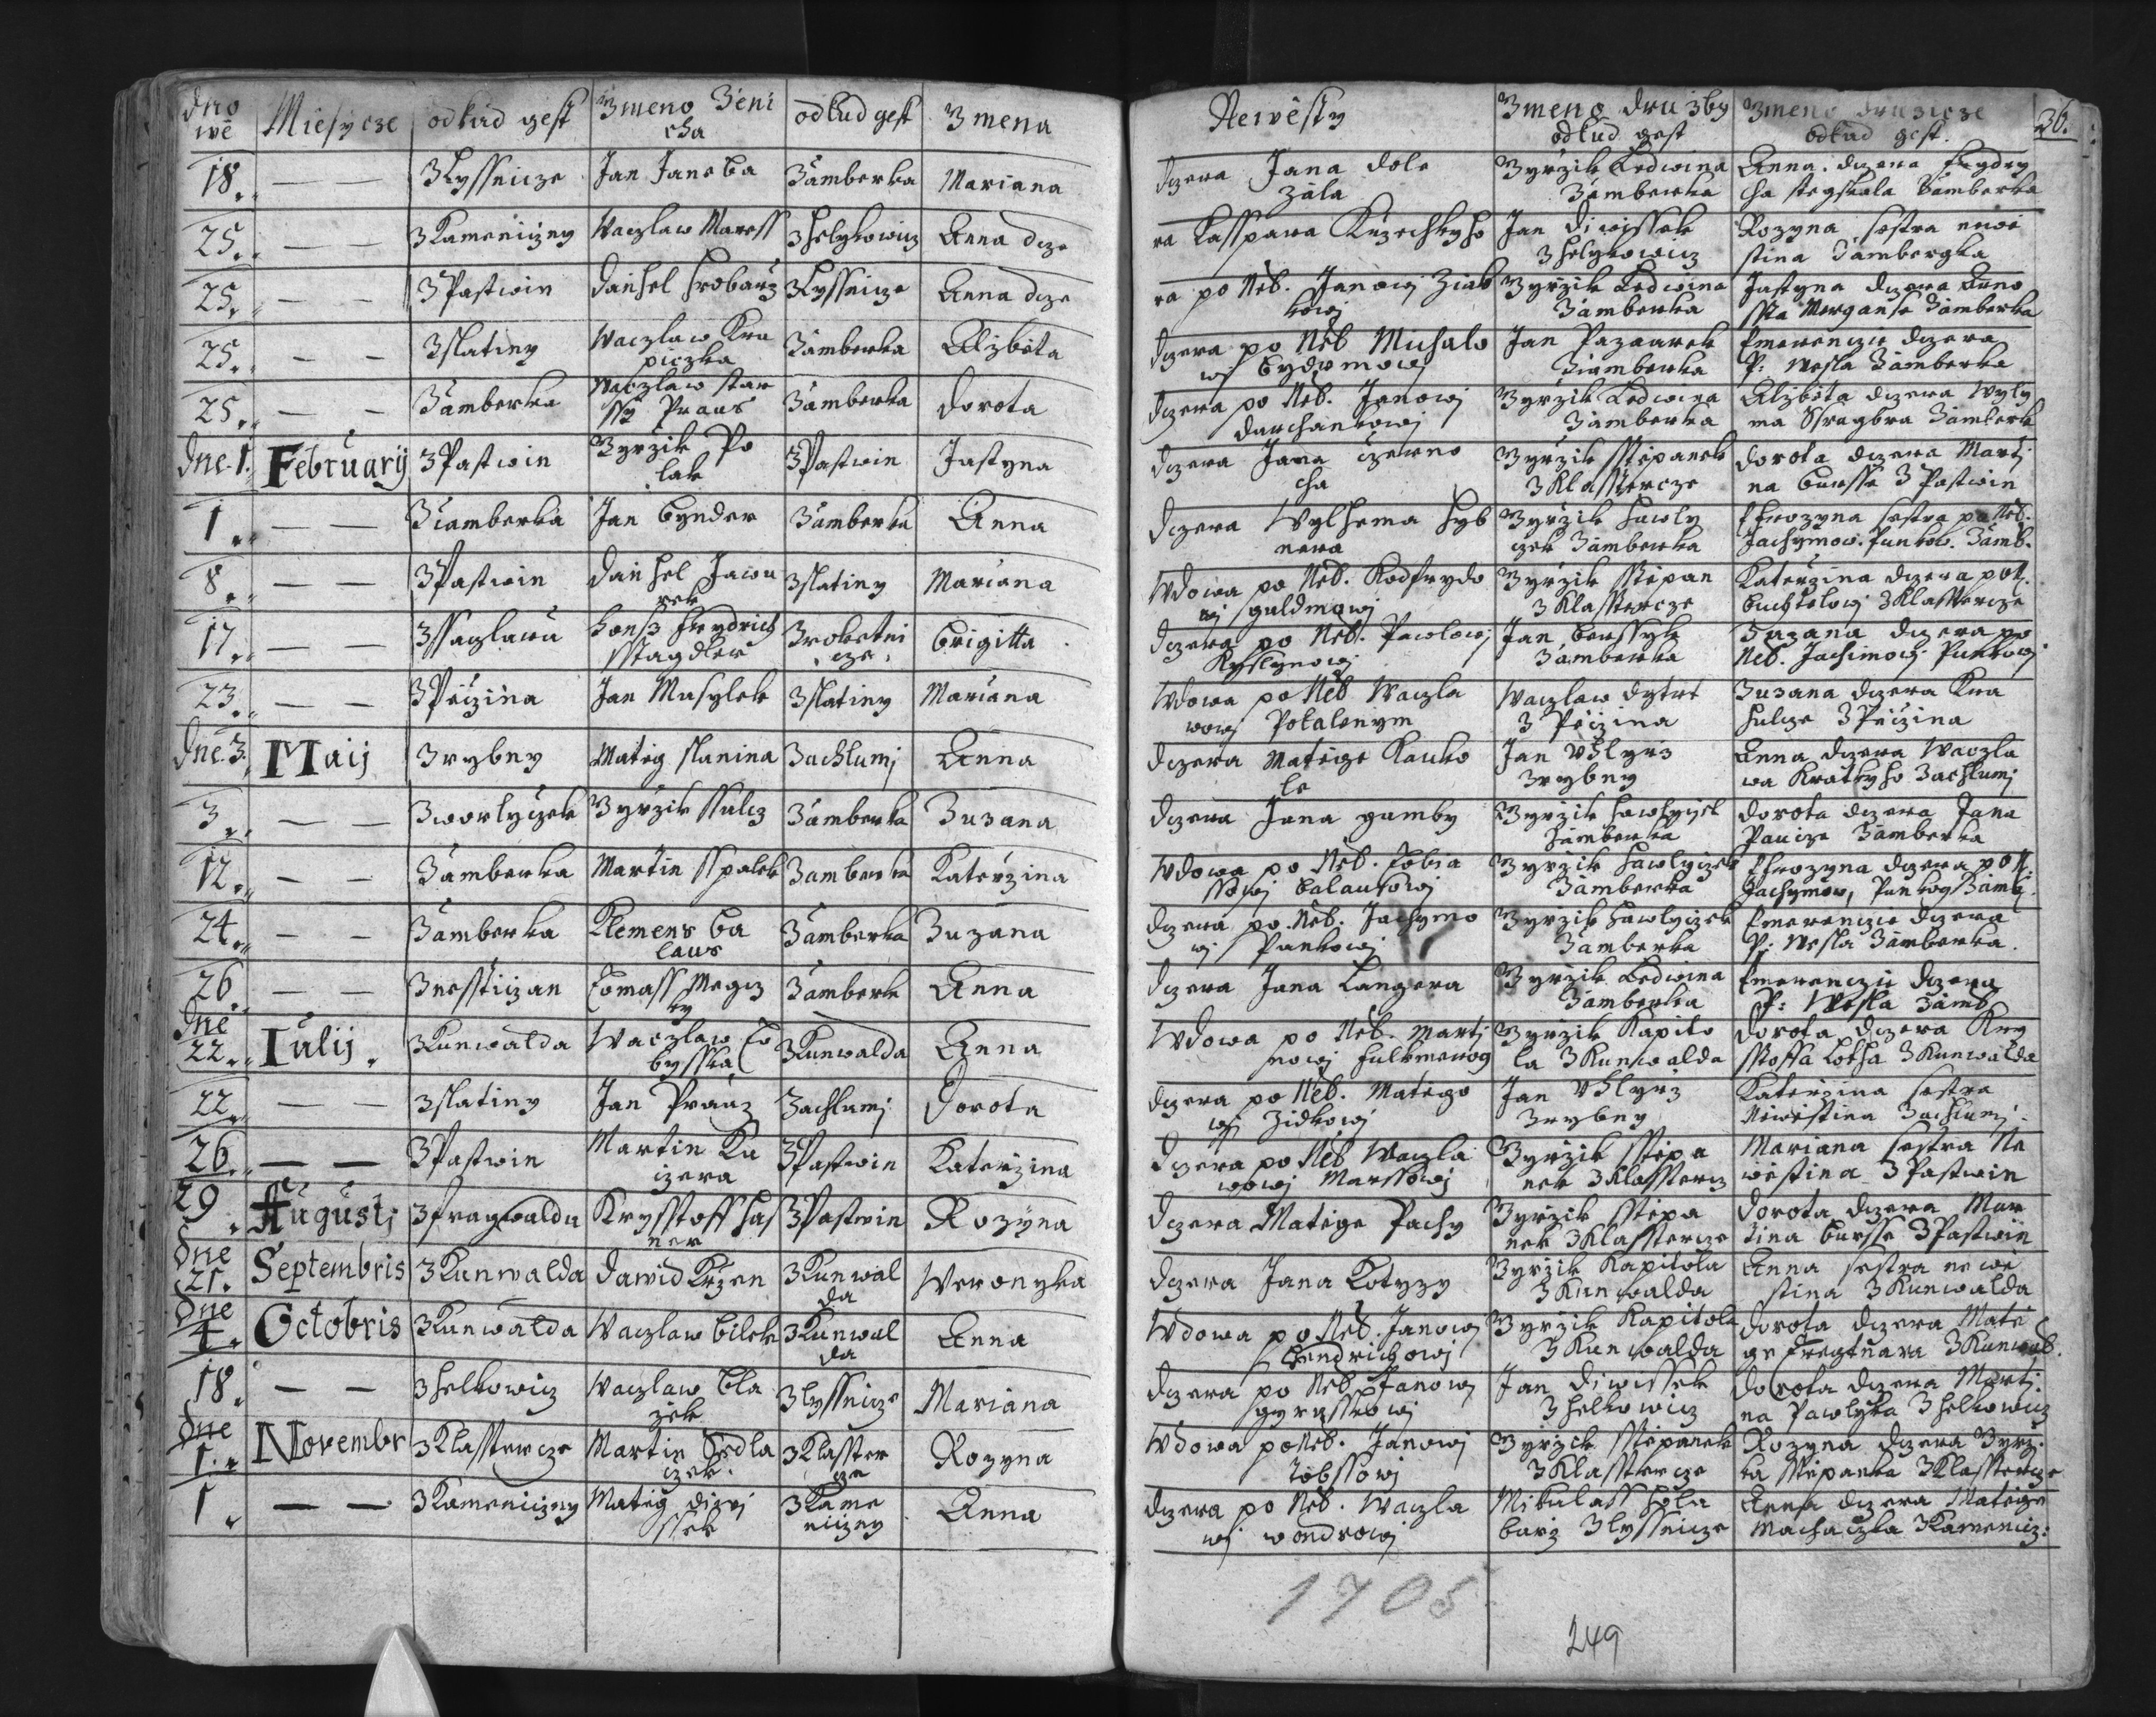 Dno wé | Miesycze | odkud gest | Zmeno Ženi cha | odkud gest | Zmena | Newěsty | Zmeno družby odkud gest | Zmeno družicze odkud gest | 36.
18. | — — | Z Lyssnicze | Jan Janeba | Zamberka | Mariana | dczera Jana dole zala | Gyržik Ledwina Zamberka | Anna dczera Frydry cha stegskala Zamberka
25. | — — | Z Kameniczny | Waczlaw Maress | Z helykowicz | Anna dcze | ra Kasspara Kuzechkyho | Jan Diwissek Z helykowicz | Rozyna sestra newě stina Zambergka
25. | — — | Z Pastwin | Daniel hrobarz | Z Lyssnicze | Anna dcze | ra po Neb. Janowi Ziab kowj | Gyržik Ledwina Zamberka | Justyna dczera
25. | — — | Z slatiny | Waczlaw Kru piczka | Zamberka | Alzbeta | dczera po Neb Michalo wj | Jan Pazaurek Zamberka | Emerenzie dczera P: Wesla Zamberka
25. | — — | Zamberka | Waczlaw star ssy Praus | Zamberka | Dorota | dczera po Neb. Janowj | Gyržik Ledwina Zamberka | Alzbeta dczera Wyly ma Zamberk
Dne. 1. | Februarij | Z Pastwin | Gyržik Po lak | Z Pastwin | Justyna | dczera Jana czerno cha | Gyržik Sstepanek Z Klasstercze | Dorota dczera Marti na Bursse Z Pastwin
1 | — — | Zamberka | Jan Bynder | Zamberka | Anna | dczera Wylhema hyb nera | Gyržik hawly czek Zamberka | Efrozyna sestra po Neb. Jachymow. Punkow. Zamb.
8 | — — | Z Pastwin | Daniel Jawu rek | Z slatiny | Mariana | Wdowa po Neb. Kodfrydo wj guldmowj | Gyržik Sstepan Z Klasstercze | Katerzina dczera pot. Buchtelowj Z Klassterze
17. | — — | | Hansz Frydrich Sstagdler | Z robetni cze | Brigitta | dczera po Neb. Pawlowj | Jan Berssyk Zamberka | Zuzana dczera po Neb. Jachimowj Punkowj
23. | — — | Z Pěczina | Jan Musylek | Z slatiny | Mariana | Wdowa po Neb Waczla wowj | Waczlaw Z Pěczina | Zuzana dczera Kra hulcze Z Pěczina
Dne. 3. | Maij | Z rybny | Matieg slanina | Zachlumj | Anna | dczera Matěge Kauko le | Jan Uhlyrz Z rybny | Anna dczera Waczla wa Kratkyho Zachlumj
3 | — — | Z worlyczek | Gyržik Ssulcz | Zamberka | Zuzana | dczera Jana gumby | Gyržik hawlyczek Zamberka | Dorota dczera Jana Zamberka
12. | — — | Zamberka | Martin Sspalek | Zamberka | Katerzina | Wdowa po Neb. Tobia ssowj Balausowj | Gyržik hawlyczek Zamberka | Efrozyna dczera po N: Jachymow, Punkog Zamb.
24. | — — | Zamberka | Klemens Ba laus | Zamberka | Zuzana | dczera po. Neb. Jachymo wj Punkowj | Gyržik hawlyczek Zamberka | Emerenczie dczera P: Wesla Zamberka
26. | — — | Z nessticzan | Tomass | Zamberk | Anna | dczera Jana Langera | Gyržik Ledwina Zamberka | Emerenczie dczera P: Wesla Zamb
Dne 22. | Iulij. | Z Kunwalda | Waczlaw To bysska | Z Kunwalda | Anna | Wdowa po Neb. Marti nowj | Gyržik Kapito la Z Kunwalda | Dorota dczera Kry stoffa Z Kunwalda
22 | — — | Z slatiny | Jan Prauz | Zachlumj | Dorota | dczera po Neb. Matěgo wj Zidkowj | Jan Uhlyrz Z rybny | Katerzina sestra Newěstina Zachlumj
26. | — — | Z Pastwin | Martin Ku czera | Z Pastwin | Katerzina | dczera po Neb Waczla wowj Marssowj | Gyržik Sstepa nek Z Klassterz | Mariana sestra Ne wěstina Z Pastwin
29. | Augusti | Z fragwaldu | Krysstoff has ner | Z Pastwin | Rozyna | dczera Matěge Pachy | Gyržik Sstepa nek Z Klassterze | Dorota dczera Mar tina Bursse Z Pastwin
Dne 21. | Septembris | Z Kunwalda | Dawid Krzen | Z Kunwal da | Weronyka | dczera Jana Kotyzy | Gyržik Kapitola Z Kunwalda | Anna sestra newě stina Z Kunwalda
Dne 4. | Octobris | Z Kunwalda | Waczlaw Bilek | Z Kunwal da | Anna | Wdowa po Neb. Janowj hendrichowj | Gyržik Kapitola Z Kunwalda | Dorota dczera Matě ge Z Kunwal.
18. | — — | Z helkowicz | Waczlaw Bla zek | Z lyssnicze | Mariana | dczera po Neb. Janowj | Jan Diwissek Z helkowicz | Dorota dczera Marti na Pawlyka Z helkowicz
Dne 1. | Novembr | Z Klassterze | Martin Sedla czek. | Z Klasster ze | Rozyna | Wdowa po Neb. Janowj | Gyržik Sstepanek Z Klassterze | Rozyna dczera Gyrž. ka Sstepanka Z Klassterze
1 | — — | Z Kameniczny | Matieg Diwi ssek | Z Kame niczny | Anna | dczera po Neb. Waczla wj wondrowj | Mikulass hola barz Z lyssnicze | Anna dczera Matěge Machaczka Z Kamenicz:
1705
249